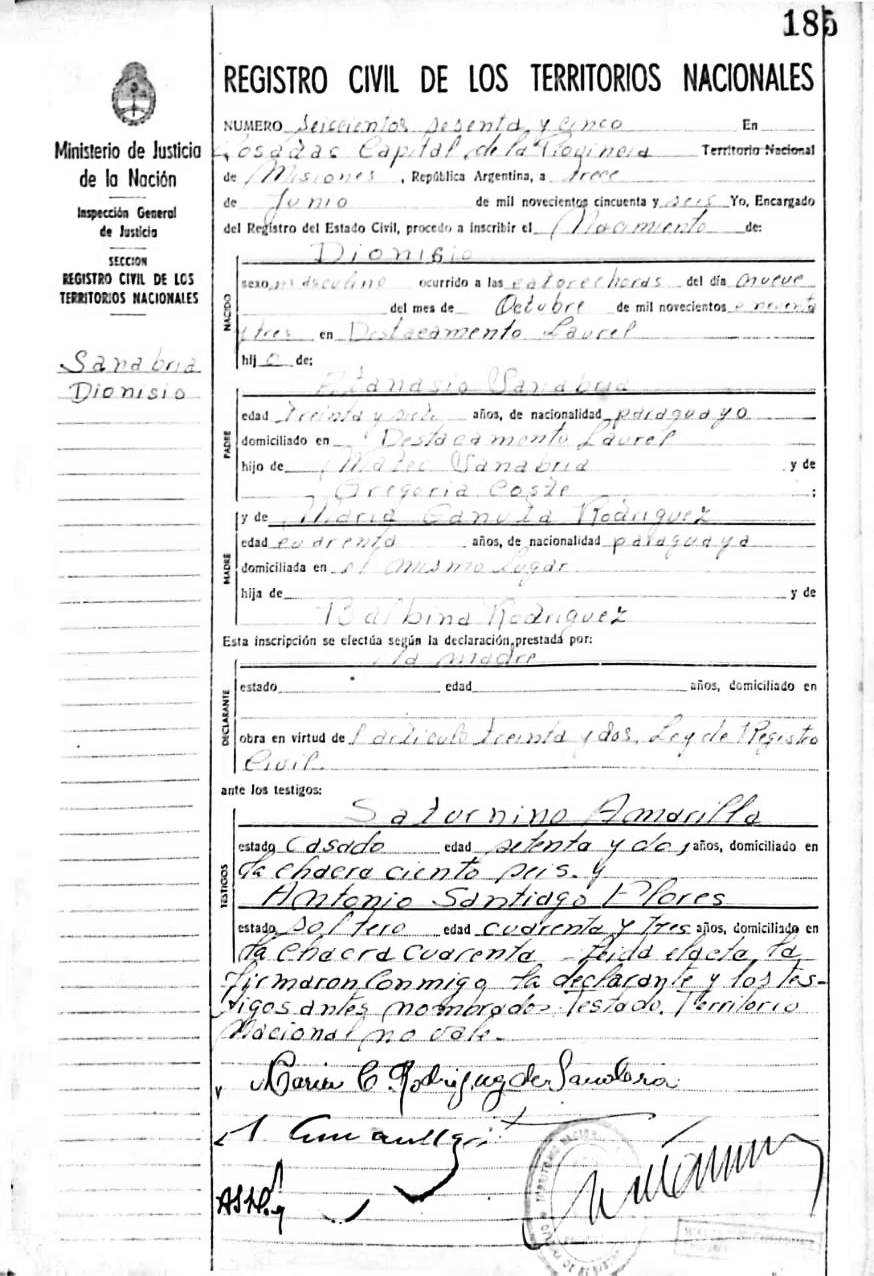 185
REGISTRO CIVIL DE LOS TERRITORIOS NACIONALES
Ministerio de Justicia
de la Nación
Inspección General
de Justicia
SECCION
REGISTRO CIVIL DE LOS
TERRITORIOS NACIONALES
Sanabria
Dionisio
NUMERO seiscientos sesenta y cinco En
Posadas Capital de la Provincia Territorio Nacional
de Misiones, República Argentina, a trece
de Junio de mil novecientos cincuenta y seis Yo, Encargado
del Registro del Estado Civil, procedo a inscribir el Nacimiento de:
Dionisio
NACIDO
sexo masculino ocurrido a las catorce horas del día nueve
del mes de Octubre de mil novecientos
y tres en Destacamento Laurel
hijo de:
Atanasio Sanabria
PADRE
edad treinta y siete años, de nacionalidad paraguayo
domiciliado en Destacamento Laurel
hijo de Mateo Sanabria y de
Gregoria ;
MADRE
y de María Canuta Rodriguez
edad cuarenta años, de nacionalidad paraguaya
domiciliada en el mismo lugar
hija de y de
Balbina Rodriguez
Esta inscripción se efectúa según la declaración prestada por:
la madre
DECLARANTE
estado edad años, domiciliado en
obra en virtud del articulo treinta y dos, Ley de Registro
Civil.
ante los testigos:
Saturnino Amarilla
TESTIGOS
estado Casado edad setenta y dos, años, domiciliado en
la chacra ciento seis. y
Antonio Santiago Flores
estado soltero edad cuarenta y tres años, domiciliado en
la chacra cuarenta Leida el acta, la
firmaron conmigo la declarante y los tes-
tigos antes nombrados Testado. Territorio
Nacional no vale.-
Maria C. Rodriguez de Sanabria